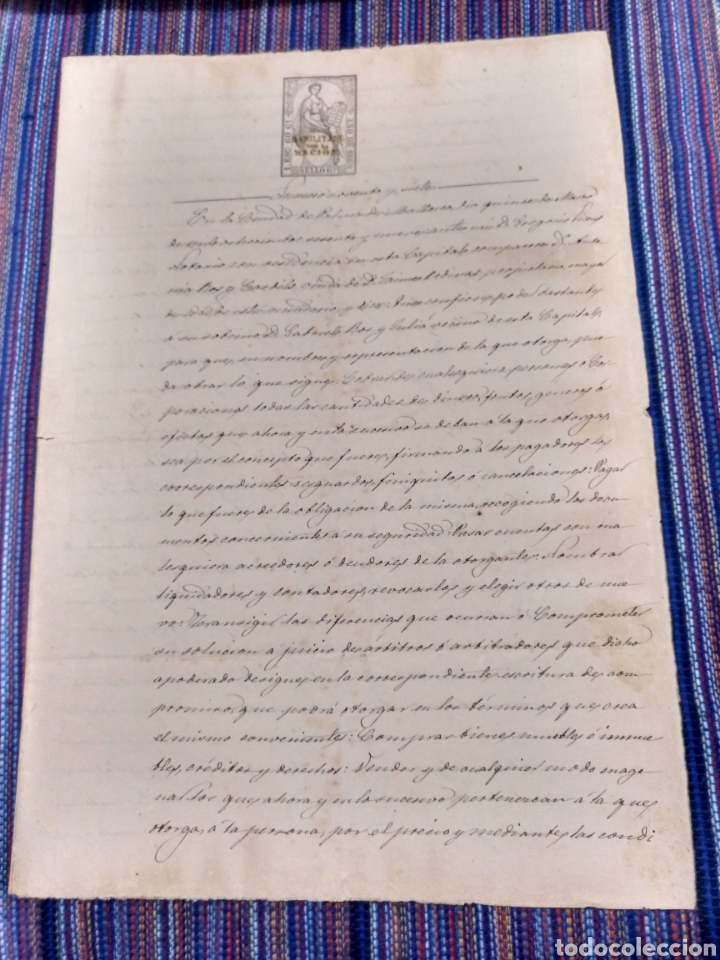 HABILITADO
POR LA
NACION
Numero noventa y siete
En la Ciudad de Palma de Mallorca, dia quince de Marzo
de mil ochocientos setenta y uno: ante mi D. Gregorio
Notario con residencia en esta Capital, comparece D.ª Anto
nia Bos y viuda de D. Jaime propietaria, mayor
de edad de este y dice: Que confiere poder bastante
á su sobrino D. Gabriel Bos y Juliá vecino de esta Capital,
para que, en nombre y representacion de la que otorga, pue
da obrar lo que sigue: Cobrar de cualesquiera personas ó Cor
poraciones todas las cantidades de dinero, frutos, generos ó
efectos que ahora y en lo sucesivo se deban á la que otorga,
sea por el concepto que fuere, firmando á los pagadores los
correspondientes resguardos, finiquitos ó cancelaciones: Pagar
lo que fuere de la obligacion de la misma, recogiendo los docu
mentos concernientes a su seguridad: Pasar cuentas con cua
lesquiera acreedores ó deudores de la otorgante: Nombrar
liquidadores y contadores, revocarlos y elegir otros de nue
vo: Transigir las diferencias que ocurran ó Comprometer
su solucion a juicio de arbitros ó arbitradores que dicho
apoderado designe en la correspondiente escritura de com
promiso, que podrá otorgar en los términos que crea
el mismo convenientes: Comprar bienes muebles é inmue
bles, créditos y derechos: Vender y de cualquier modo enage
nar los que ahora y en lo sucesivo pertenezcan á la que
otorga, á la persona, por el precio y mediante las condi
todocoleccion